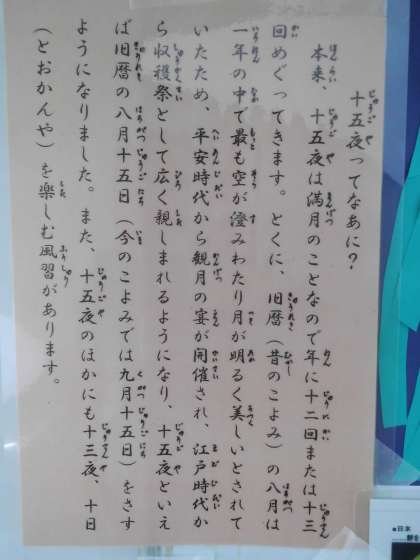 十五夜ってなあに?
本来、十五夜は満月のことなので年に十二回または十三
回めぐってきます。とくに、旧暦(昔のこよみ)の八月は
一年の中で最も空が澄みわたり月が明るく美しいとされて
いたため、平安時代から観月の宴が開催され、江戸時代か
ら収穫祭として広く親しまれるようになり、十五夜といえ
ば旧暦の八月十五日(今のこよみでは九月十五日)をさす
ようになりました。また、十五夜のほかにも十三夜、十日
(とおかんや)を楽しむ風習があります。
■日本